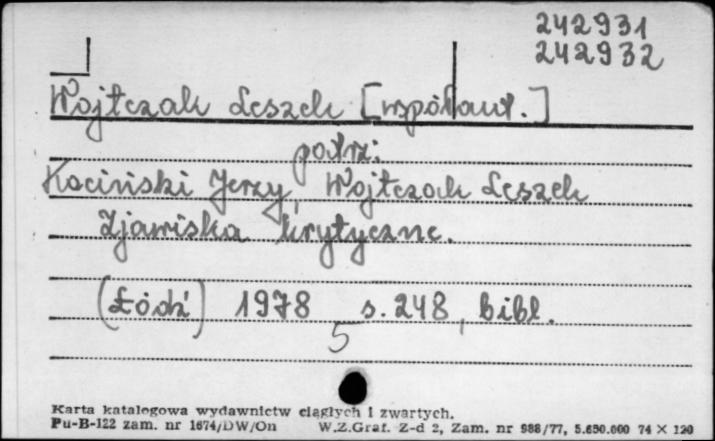 242931
242932
Wojtczak Leszek [współaut.]
patrz:
Kociński Jerzy, Wojtczak Leszek
Zjawiska krytyczne.
(Łódź) 1978 s. 248, bibl.
5
Karta katalogowa wydawnictw ciągłych i zwartych.
Pu-B-122 zam. nr 1674/DW/On W.Z.Graf. Z-d 2, Zam. nr 988/77, 5.650.000 74 × 120